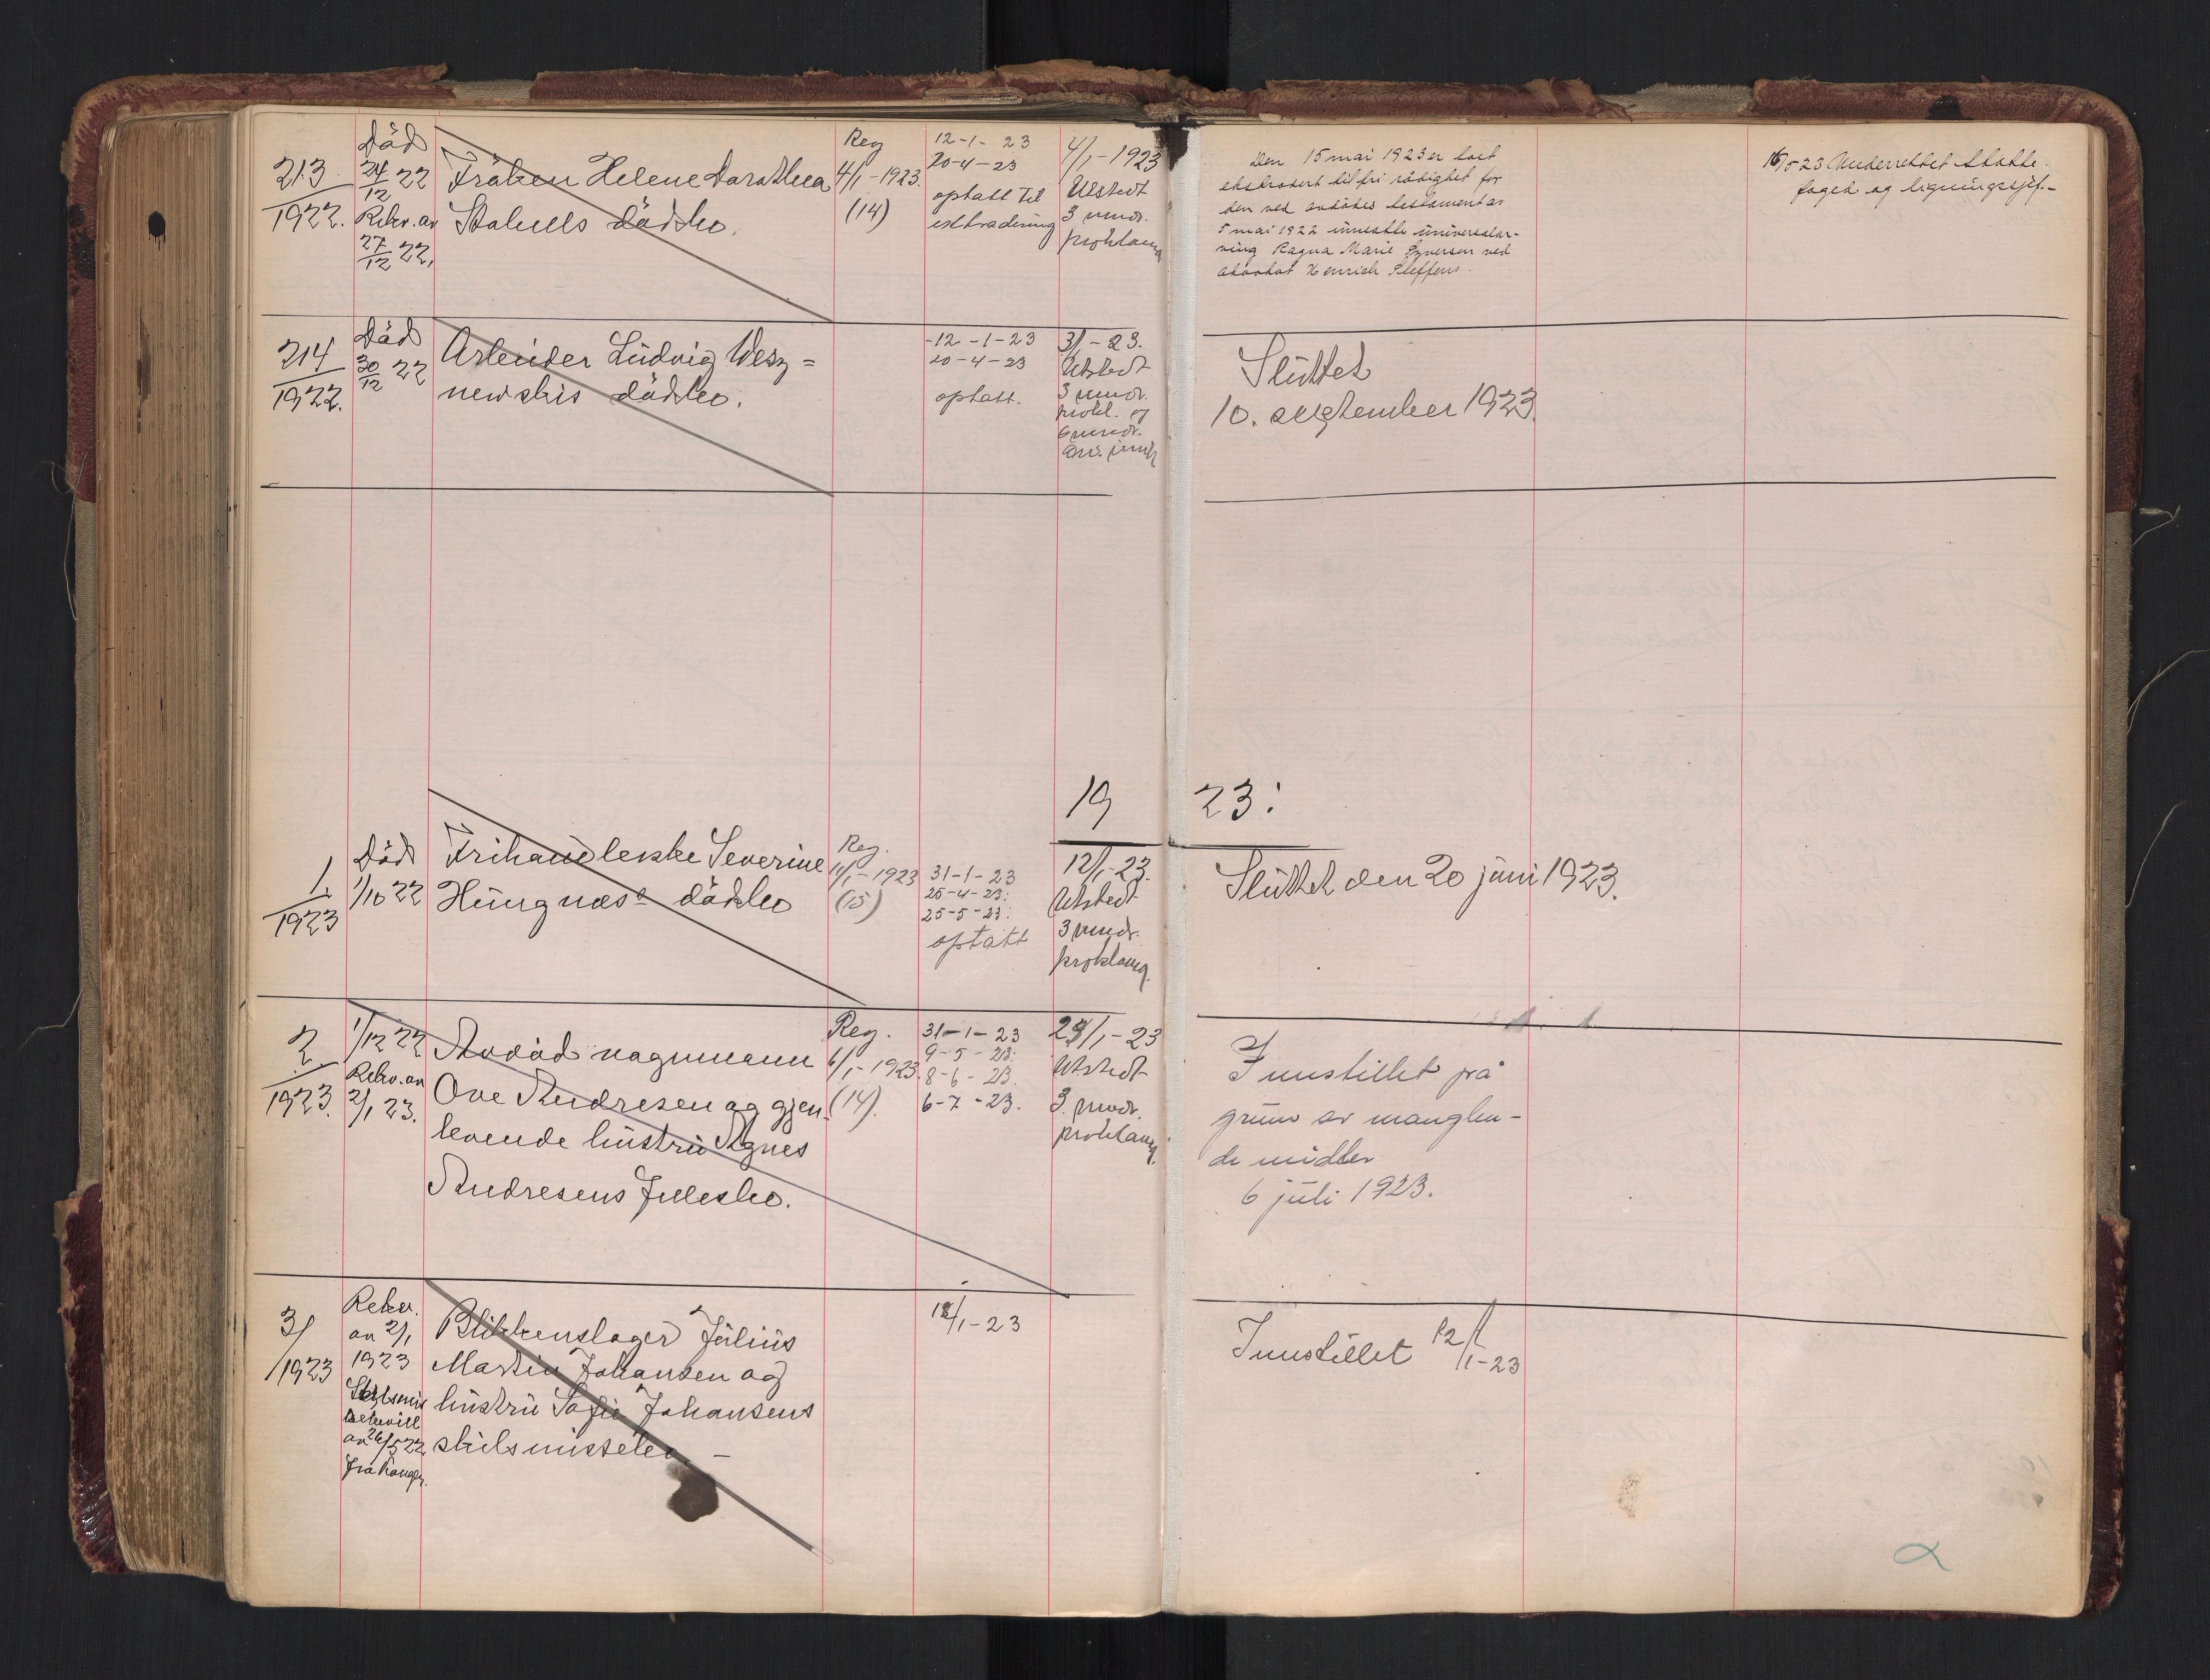 213
1922.
Död
24/12 22
Rekv. av
27/12 22.
Fröken Helene Dorothea
Stabells dödsbo.
Reg
4/1-1923.
(14)
12-1-23
20-4-23
optatt til
extradering
4/1-1923
Utstedt
3 mndr.
proklama
Den 15 mai 1923 er boet
ekstradert til fri rådighet for
den ved avdödes testament av
5 mai 1922 innsatte universalar-
ving Ragna Marie Syversen ved
advokat Henrich Steffens.
16/5 23 Underrettet Skatte-
foged og ligningssjef.-
214
1922.
Död
30/12 22
Arbeider Ludvig Wesz=
newskis dödsbo.
-12-1-23
20-4-23
optatt.
3/1-23.
Utstedt
3 mndr.
prokl. og
6 mndr.
arv. innk
Sluttet
10. september 1923.
19 23:
1/1923
Död
1/10 22
Frihandlerske Severine
Hungnæs's dödsbo
Reg.
11/1-1923
(15)
31-1-23
25-4-23.
25-5-23.
optatt
12/1-23.
Utstedt
3 mndr.
proklama.
Sluttet den 20 juni 1923.
2
1923.
1/12 22
Rekv. av
2/1 23.
Avdöd vognmann
Ove Andresen og gjen
levende hustru Agnes
Andresens fellesbo.
Reg.
6/1-1923.
(14).
31-1-23
9-5-23.
8-6-23.
6-7-23.
29/1-23
Utstedt
3 mndr.
proklama.
Innstillet på
grunn av manglen-
de midler
6 juli 1923.
3/1923
Rekv.
av 2/1
1923
Skilsmis
bevill
av 26/5 22
fra Kongen.
Blikkenslager Julius
Martin Johansen og
hustru Sofie Johansens
skilsmissebo. -
12/1-23
Innstillet 12/1-23